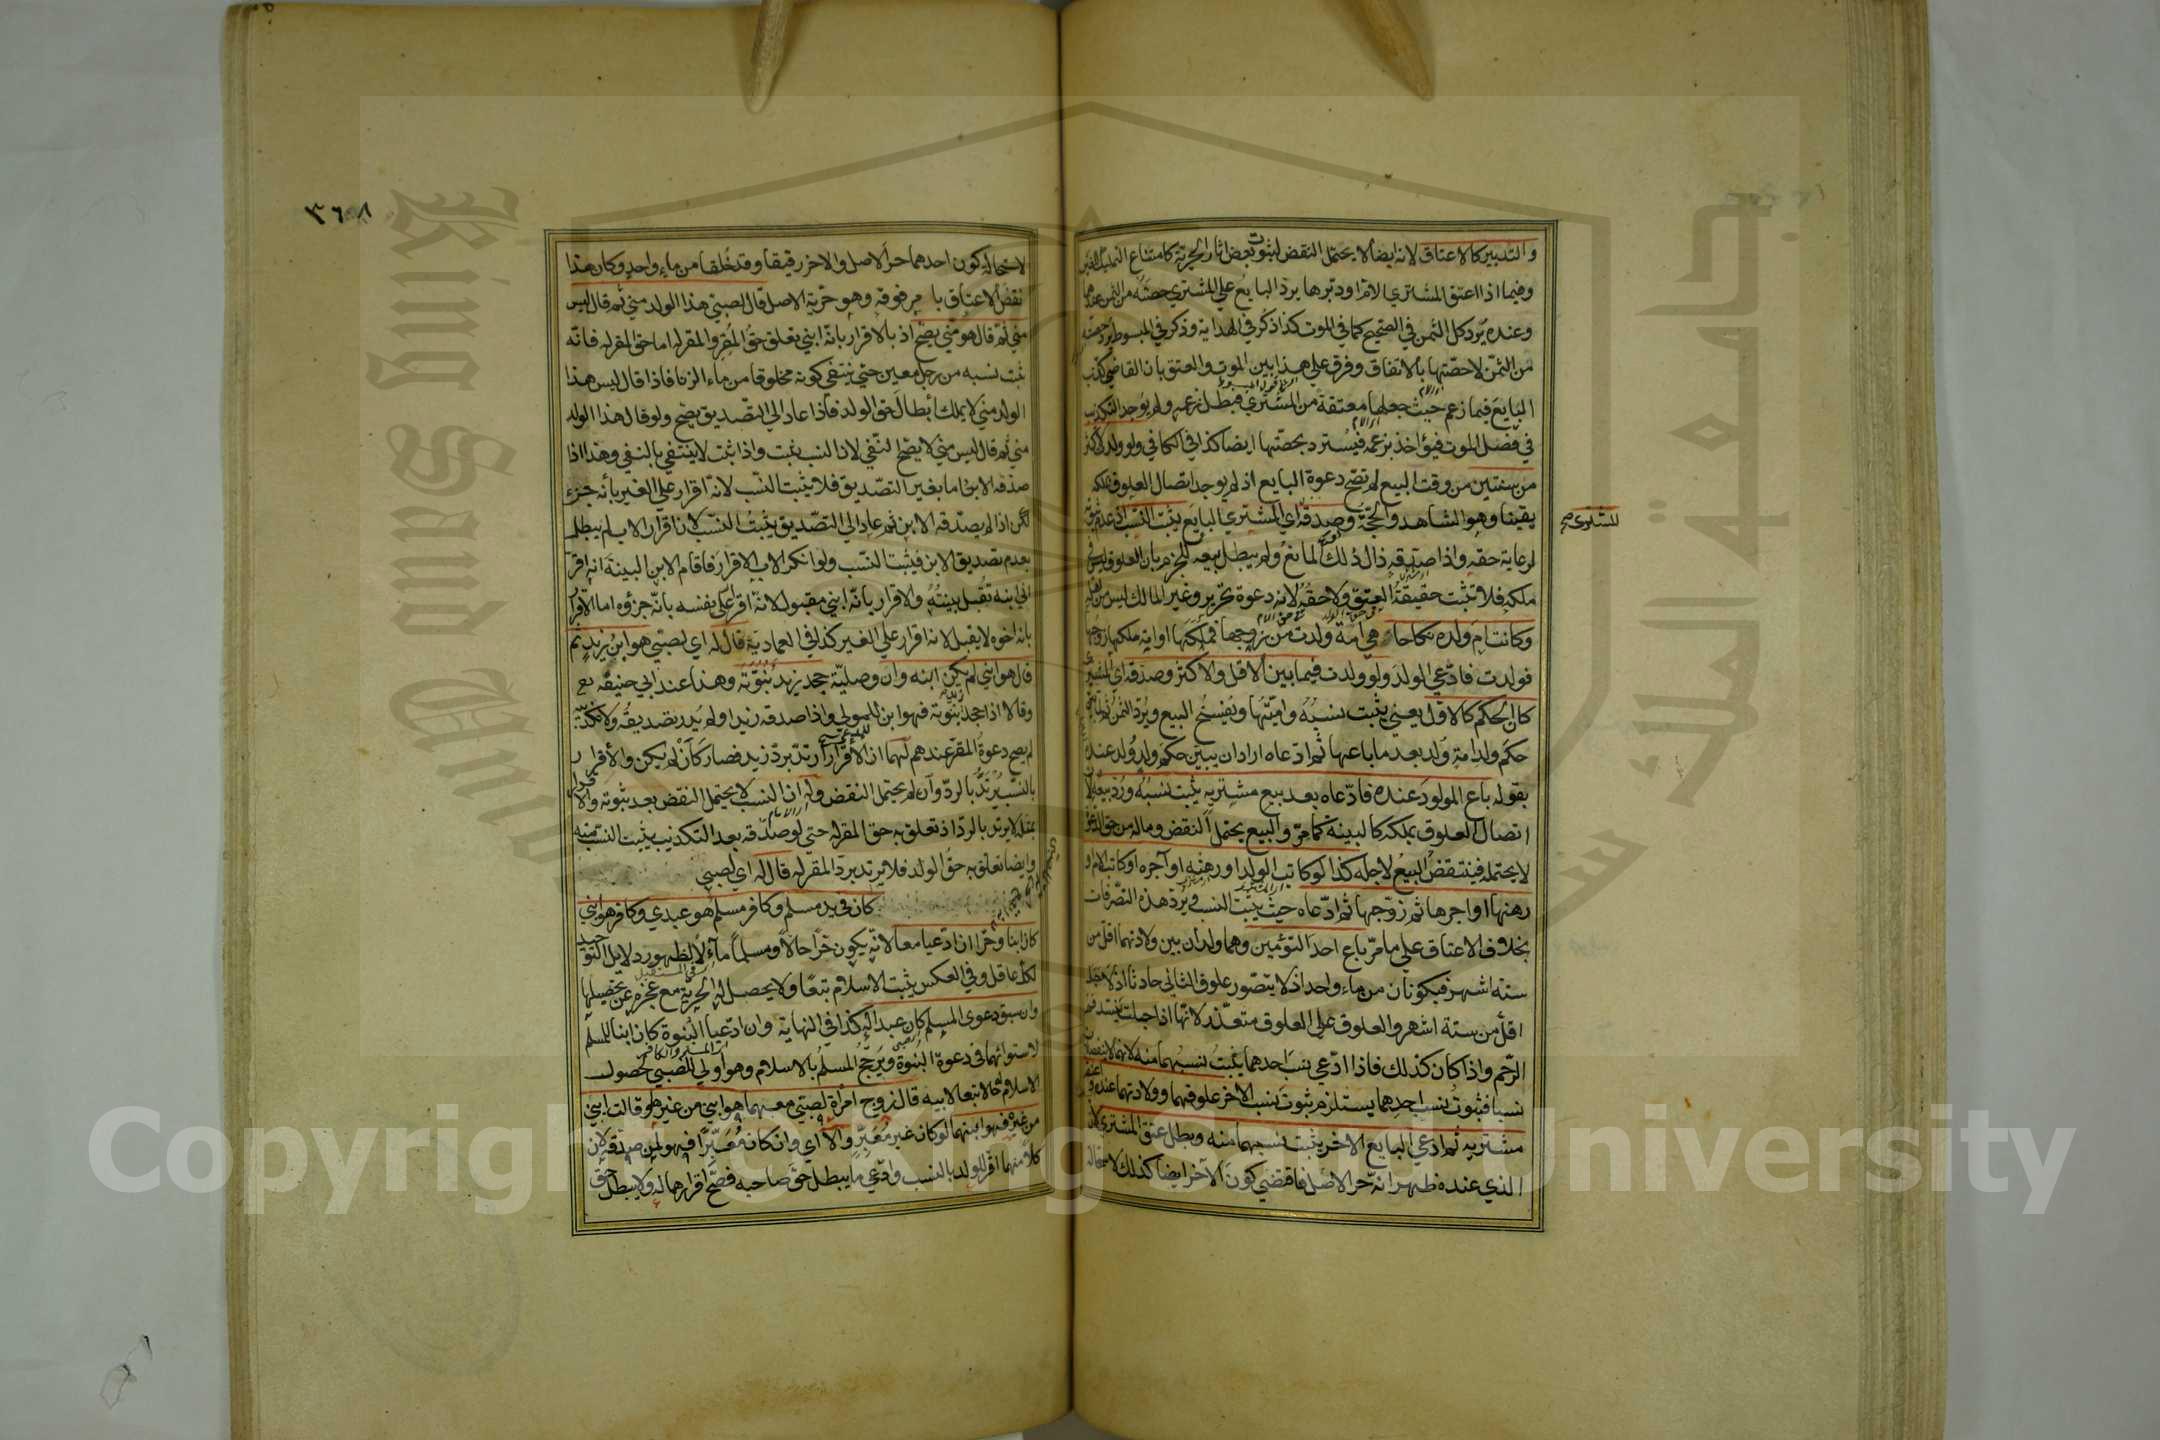 والتدبير كالاعتاق لانه ايضا لا يحتمل النقض لثبوت بعض اثار الحرية كامتناع التمليك للغير
وفيما اذا اعتق المشتري الام او دبرها يرد البايع علي المشتري حصته من الثمن عندهما
وعنده يرد كل الثمن في الصحيح كما في الموت كذا ذكر في الهداية وذكر في المبسوط يرد حصته
من الثمن لا حصتها بالاتفاق وفرق علي هذا بين الموت والعتق بان القاضي كذب
البايع فيما زعم حيث جعلها معتقة من المشتري فبطل زعمه ولم يوجد التكذيب
في فصل الموت فيؤاخذ بزعمه فيسترد بحصتها ايضا كذا في الكافي ولو ولدت لاكثر
من سنتين من وقت البيع لم تصح دعوة البايع اذ لم يوجد اتصال العلوق بملكه
يقينا وهو الشاهد والحجة وصدقه اي المشتري البايع يثبت النسب اذ عدم ثبوته
للمشتري صح
لرعاية حقه واذا صدقه زال ذلك المانع ولم يبطل بيعه للجزم بان العلوق ليس في
ملكه فلا تثبت حقيقة العتق ولا حقه لانه دعوة تحرير وغير المالك ليس من اهله
وكانت ام ولده نكاحا هي امة ولدت من زوجها فملكها او امة ملكها زوجها
فولدت فادعي الولد ولو ولدت فيما بين الاقل والاكثر وصدقه اي المشتري
كان الحكم كالاول يعني يثبت نسبه واميتها ويفسخ البيع ويرد الثمن
حكم ولد امة ولد بعد ما باعها ثم ادعاه اراد ان يبين حكم ولد ولد عنده
بقوله باع المولود عنده فادعاه بعد بيع مشتريه يثبت نسبه ورد بيعه لان
اتصال العلوق بملكه كالبينة كما مر والبيع يحتمل النقض وماله من حق الدعوة
لا يحتمله فينتقض البيع لاجله كذا لو كاتب الولد او رهنه او آجره او كاتب الام او
رهنها او اجرها ثم زوجها ثم ادعاه حيث يثبت النسب ويرد هذه التصرفات
بخلاف الاعتاق علي ما مر باع احد التوئمين وهما ولدان بين ولادتهما اقل من
ستة اشهر فيكونان من ماء واحد اذ لا يتصور علوق الثاني حادثا اذ لا حبل
اقل من ستة اشهر والعلوق علي العلوق متعذر لانها اذا حبلت ينسد فم
الرحم واذا كان كذلك فاذا ادعي نسب احدهما يثبت نسبهما منه لانهما لا ينفصلان
نسبا فثبوت نسب احدهما يستلزم ثبوت نسب الاخر علوقهما وولادتهما عنده واعتقه
مشتريه ثم ادعي البايع الاخر يثبت نسبهما منه وبطل عتق المشتري لان
الذي عنده ظهر انه حر الاصل فاقتضي كون الآخر ايضا كذلك لاستحالة
٣٦٨
لاستحالة كون احدهما حر الاصل والاخر رقيقا وقد خلقا من ماء واحد وكان هذا
نقض الاعتاق بامر فوقه وهو حرية الاصل قال لصبي هذا الولد مني ثم قال ليس
مني ثم قال هو مني يصح اذ بالاقرار بانه ابني تعلق حق المقر والمقر له اما حق المقر له فانه
يثبت نسبه من رجل معين حتي ينتفي كونه مخلوقا من ماء الزنا فاذا قال ليس هذا
الولد مني لا يملك ابطال حق الولد فاذا عاد الي التصديق يصح ولو قال هذا الولد
مني ثم قال ليس مني لا يصح النفي لان النسب يثبت واذا ثبت لا ينتفي بالنفي وهذا اذا
صدقه الابن اما بغير التصديق فلا يثبت النسب لانه اقرار علي الغير بأنه جزء
لكن اذا لم يصدقه الابن ثم عاد الي التصديق يثبت النسب لان اقرار الاب لم يبطل
بعدم تصديق الابن فيثبت النسب ولو انكر الاب الاقرار فاقام الابن البينة انه اقر
اني ابنه تقبل بينته والاقرار بانه ابني مقبول لانه اقر علي نفسه بانه جزؤه اما الاقرار
بانه اخوه لا يقبل لانه اقرار علي الغير كذا في العمادية قال له اي لصبي هو ابن زيد ثم
قال هو ابني لم يكن ابنه وان وصلية جحد زيد بنوته وهذا عند ابي حنيفة رح
وقالا اذا جحد بنوته فهو ابن للمولي واذا صدقه زيد او لم يدر تصديقه ولا تكذيبه
لم يصح دعوة المقر عندهم لهما ان الاقرار ارتد برد زيد فصار كأن لم يكن والاقرار
بالنسب يرتد بالرد وان لم يحتمل النقض وله ان النسب لا يحتمل النقض بعد ثبوته والاقرار
بمثله لا يرتد بالرد اذ تعلق به حق المقر له حتي لو صدقه بعد التكذيب يثبت النسب منه
وايضا تعلق به حق الولد فلا يرتد برد المقر له قال له اي لصبي
كان في يد مسلم وكافر مسلم هو عبدي وكافر هو ابني
كان ابنا وحرا ان ادعيا معا لانه يكون حرا حالا ومسلما مآلا لظهور دلايل التوحيد
لكل عاقل وفي العكس يثبت الاسلام تبعا ولا يحصل له الحرية مع عجزه عن تحصيلها
وان سبق دعوي المسلم كان عبدا له كذا في النهاية وان ادعيا البنوة كان ابنا للمسلم
لاستوائهما في دعوة البنوة ويرجح المسلم بالاسلام وهو اولي للصبي لحصول
الاسلام له حالا تبعا لابيه قال زوج امرأة لصبي معهما هو ابني من غيرها وقالت ابني
من غيره فهو ابنهما لو كان غير معبر والا اي وان كان معبرا فهو لمن صدقه لان
كلا منهما اقر للولد بالنسب وادعي ما يبطل حق صاحبه فصح اقرارهما له ولا يبطل حق
Copyright © King Saud University
King Saud University
جامعة الملك سعود